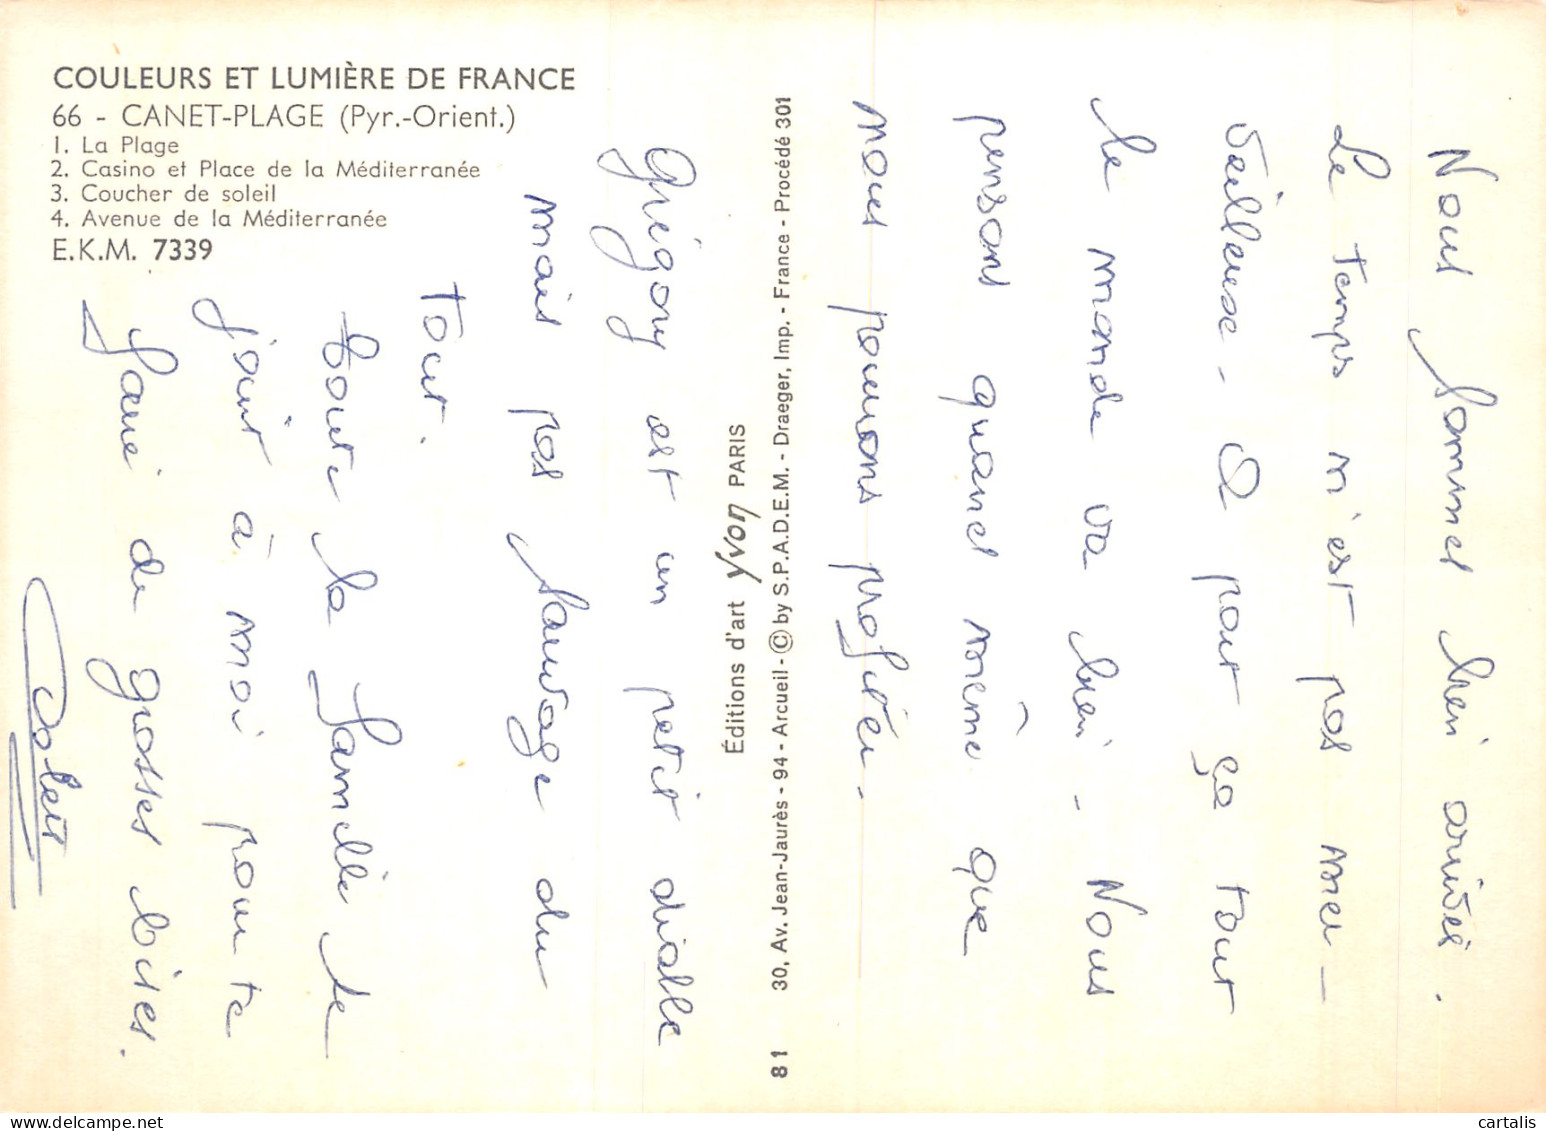 COULEURS ET LUMIÈRE DE FRANCE
66 - CANET-PLAGE (Pyr.-Orient.)
1. La Plage
2. Casino et Place de la Méditerranée
3. Coucher de soleil
4. Avenue de la Méditerranée
E.K.M. 7339
Éditions d'art yvon PARIS
81 30, Av. Jean-Jaurès - 94 - Arcueil - © by S.P.A.D.E.M. - Draeger, Imp. - France - Procédé 301
Nous sommes bien arrivés.
Le temps n'est pas mer-
veilleux - à part ça tout
le monde va bien - Nous
pensons quand même que
nous pourrons profiter.
Grégory est un petit diable
mais pas sauvage du
tout.
Toute la famille se
joint à moi pour te
faire de grosses bises.